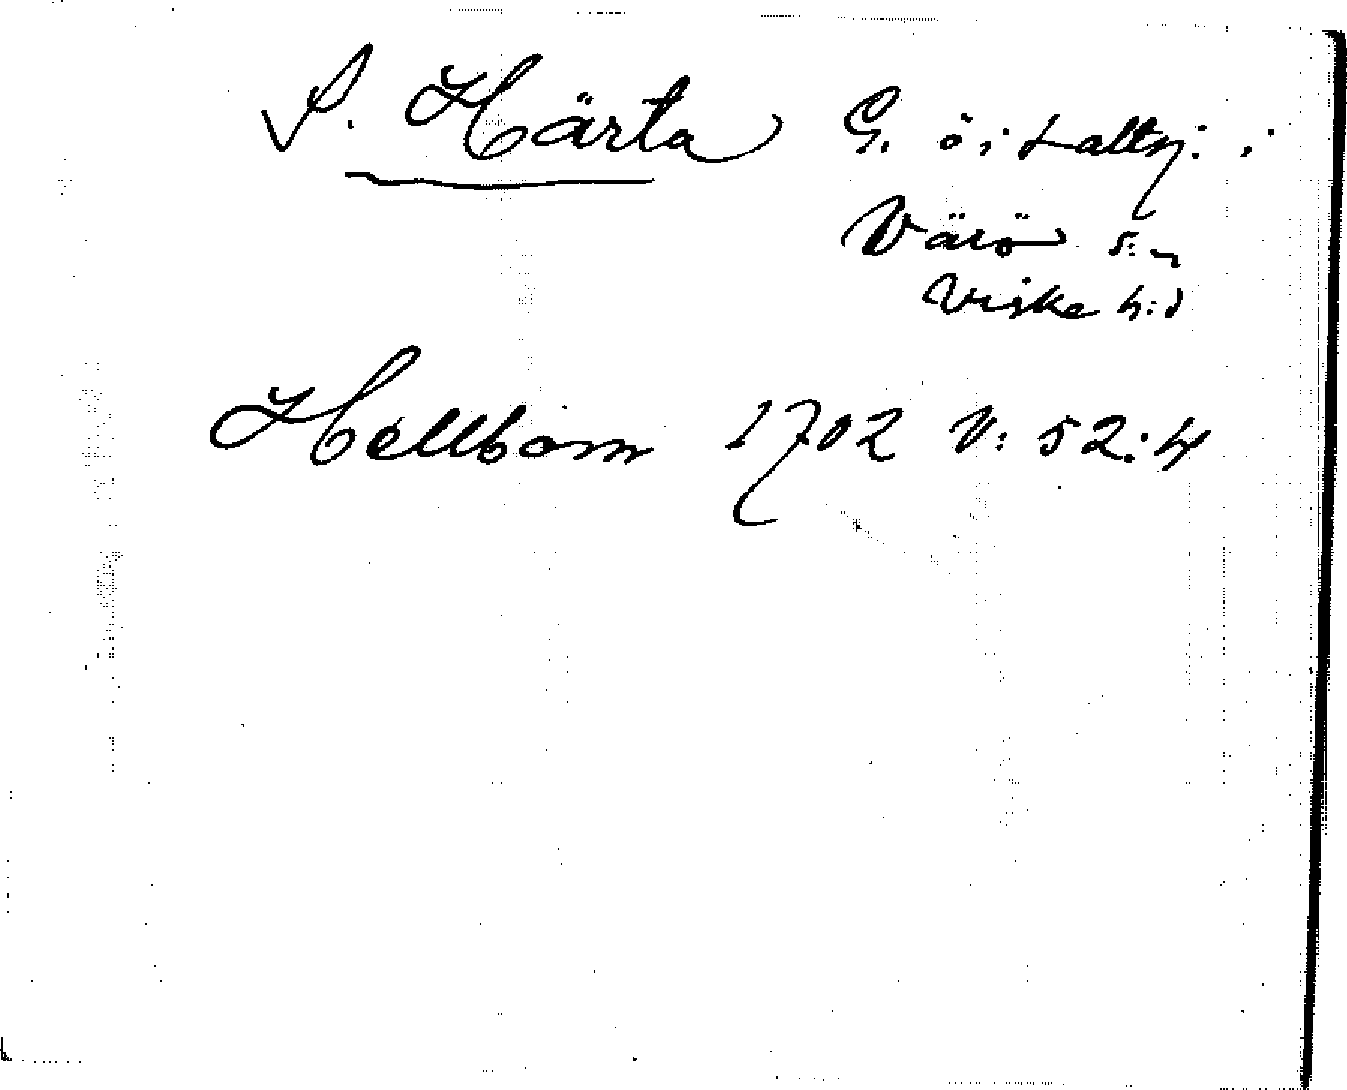 S. Härta G. ö. i saltsj. i
Värö s:n
Viske h:d
Hellbom 1702 V: 52:4